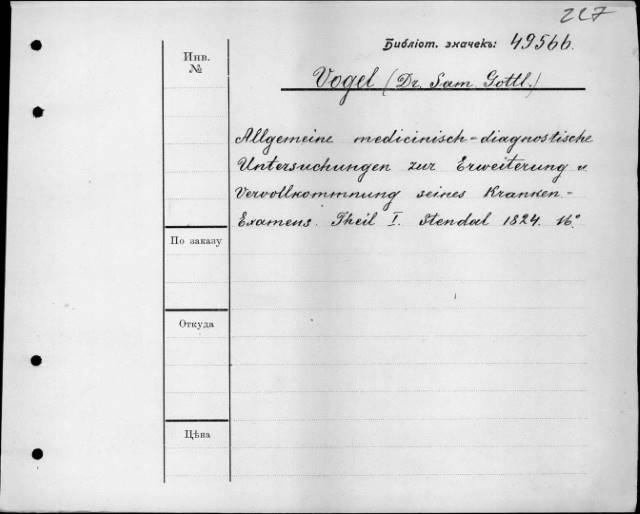 227
Библіот. значекъ: 49566.
Инв.
№
Vogel (Dr. Sam. Gottl.)
Allgemeine medicinisch-diagnostische
Untersuchungen zur Erweiterung u
Vervollkommnung seines Kranken-
Examens. Theil I. Stendal 1824. 16°
По заказу
Откуда
Цѣна